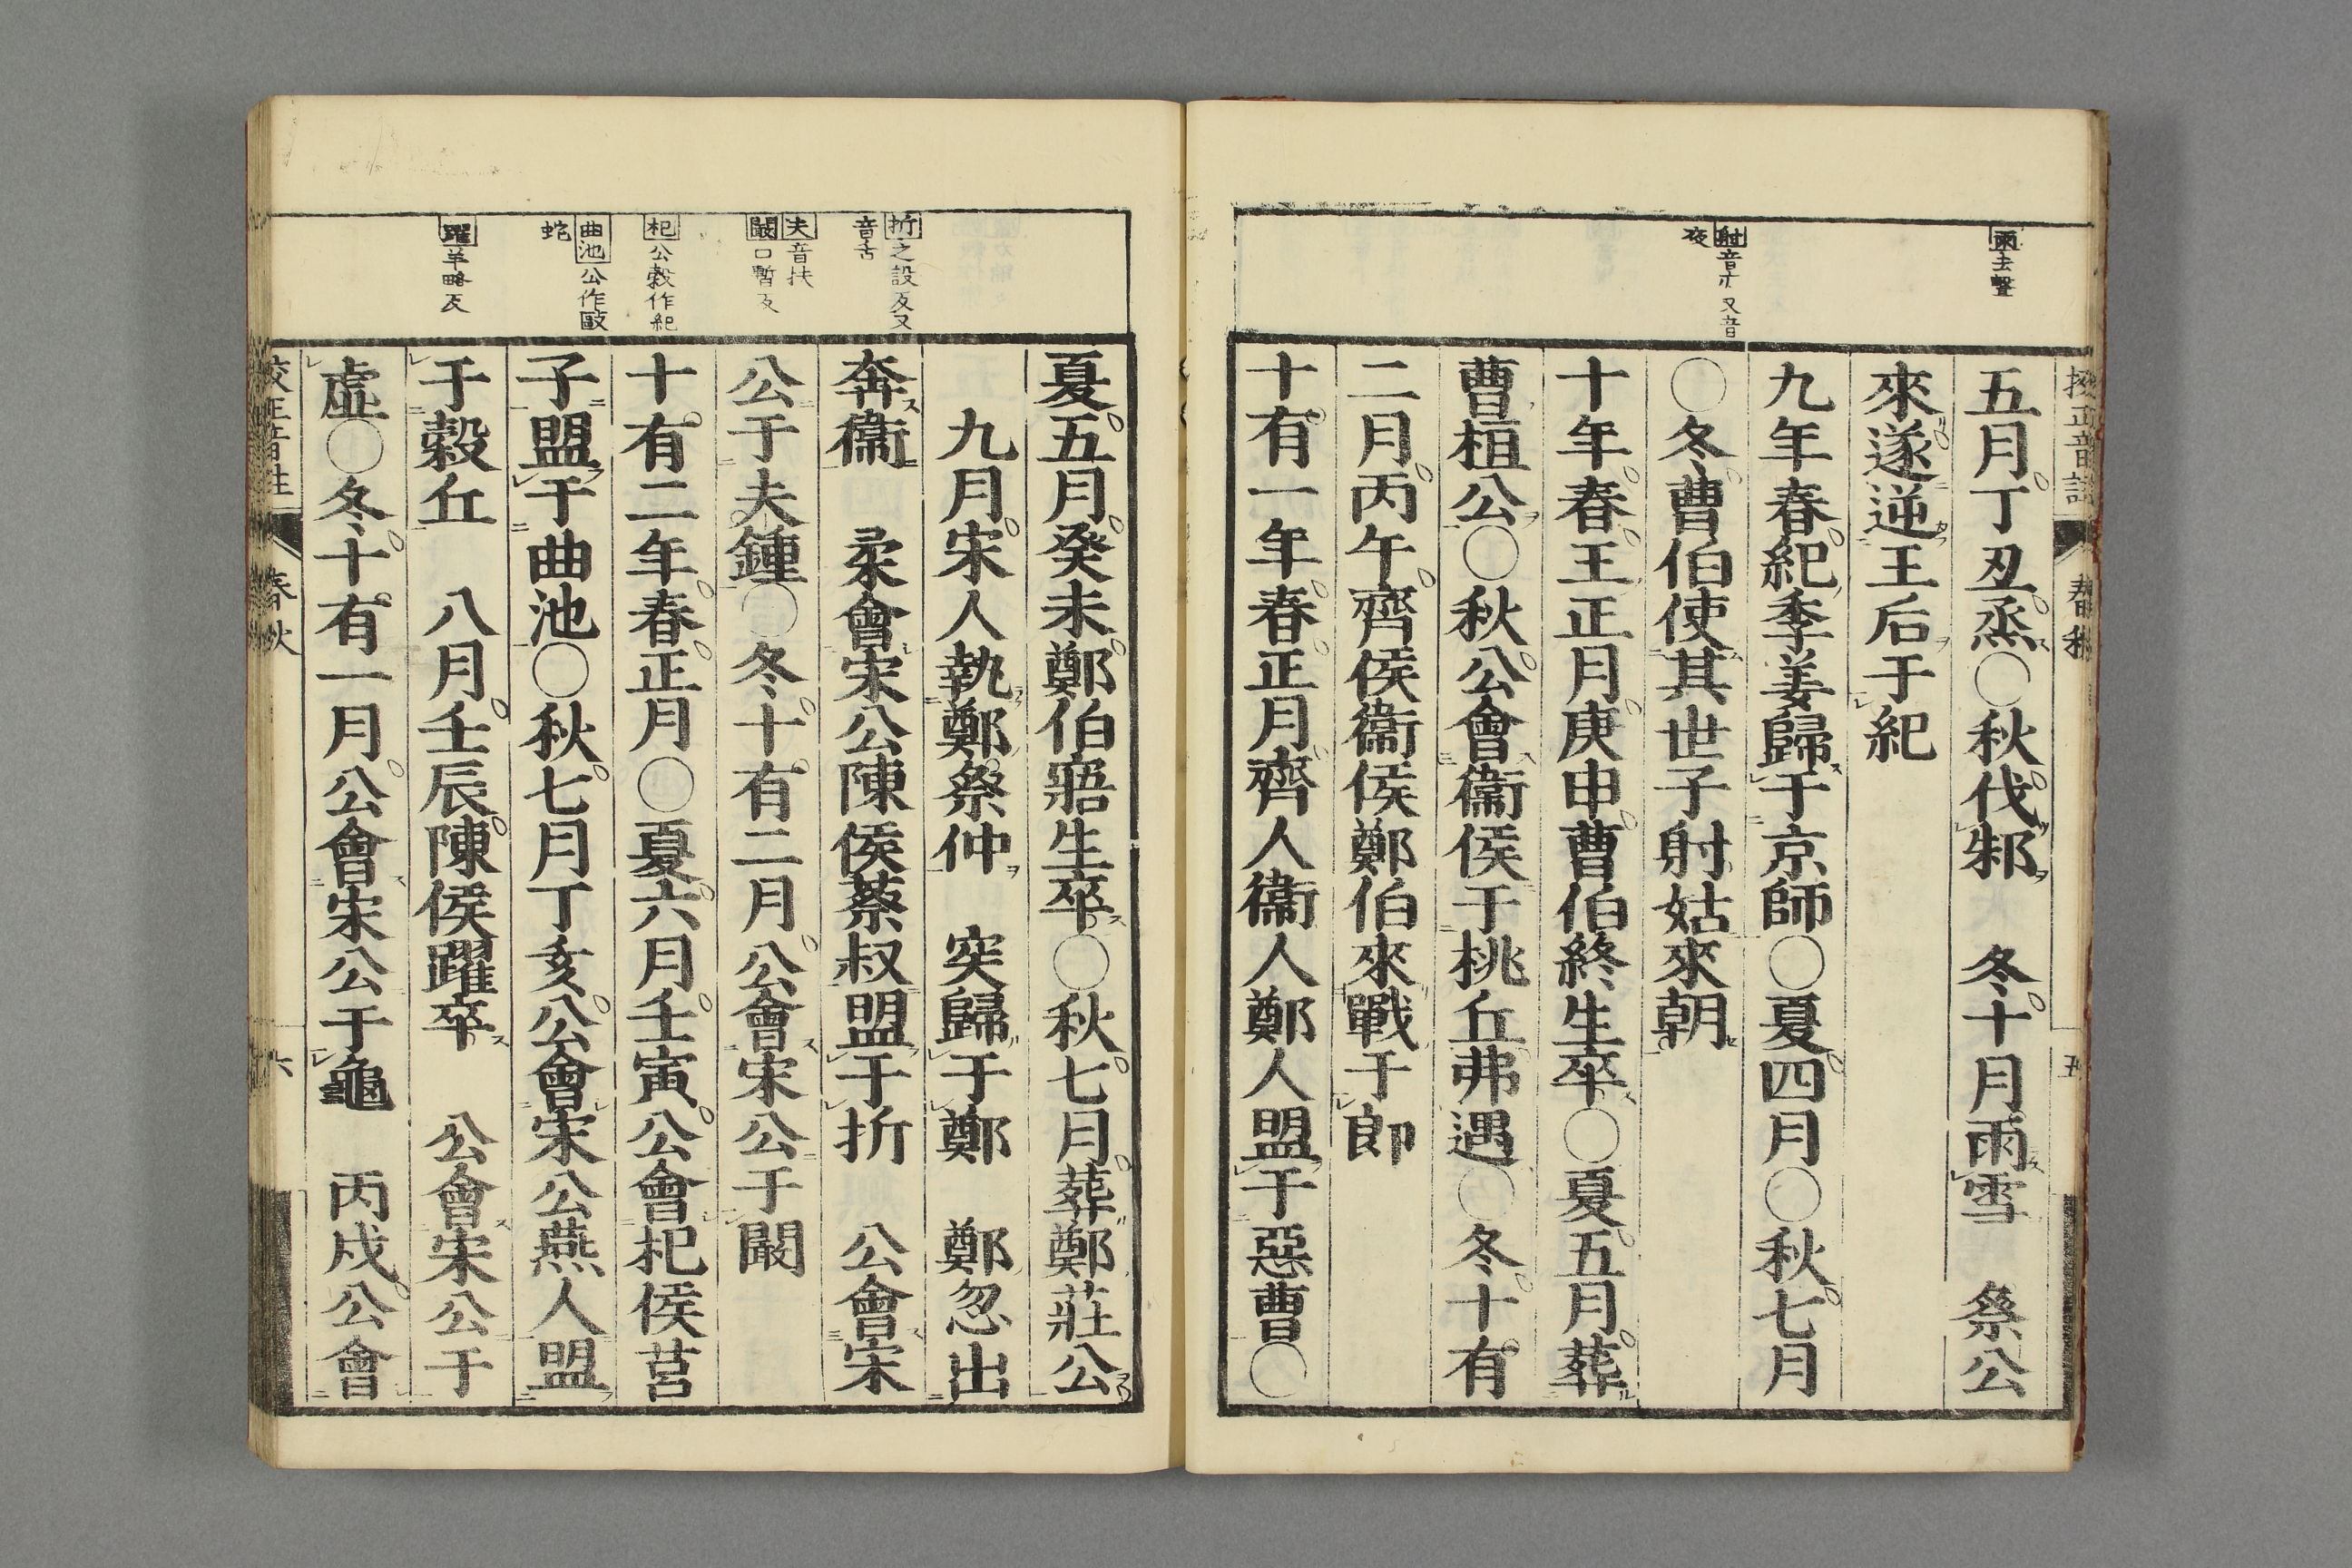 校正音註 春秋 五
雨去聲
射音亦又音
夜
五月丁丑烝○秋伐邾 冬十月雨雪 祭公
來遂逆王后于紀
九年春紀季姜歸于京師○夏四月○秋七月
○冬曹伯使其世子射姑來朝
十年春王正月庚申曹伯終生卒○夏五月葬
曹桓公○秋公會衞侯于桃丘弗遇○冬十有
二月丙午齊侯衞侯鄭伯來戰于郎
十有一年春正月齊人衞人鄭人盟于惡曹○
折之設反又
音舌
夫音扶
闞口暫反
杞公穀作紀
曲池公作毆
蛇
躍羊略反
夏五月癸未鄭伯寤生卒○秋七月葬鄭莊公
九月宋人執鄭祭仲 突歸于鄭 鄭忽出
奔衞 柔會宋公陳侯蔡叔盟于折 公會宋
公于夫鍾○冬十有二月公會宋公于闞
十有二年春正月○夏六月壬寅公會杞侯莒
子盟于曲池○秋七月丁亥公會宋公燕人盟
于穀丘 八月壬辰陳侯躍卒 公會宋公于
虛○冬十有一月公會宋公于龜 丙戌公會
校正音註 春秋 六